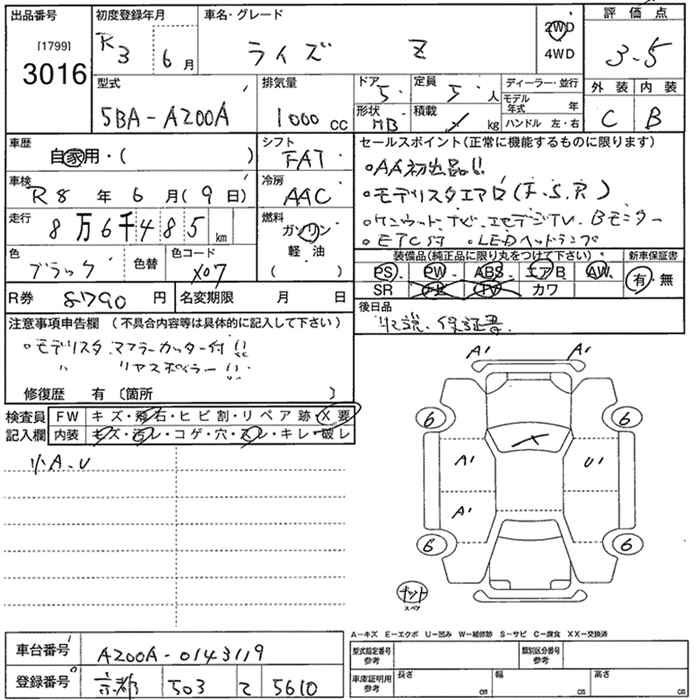 出品番号 [1799] 3016
初度登録年月 R3 6月
車名・グレード ライズ Z
2WD 4WD
評価点 3.5
外装 C 内装 B
型式 5BA-A200A
排気量 1000 cc
ドア 5. 定員 5. 人
形状 HB 積載 kg
ディーラー・並行
モデル年式 年
ハンドル 左・右
車歴 自家用・( )
シフト FAT
車検 R8 年 6 月 ( 9 日)
冷房 AAC
走行 8万6千485 km
燃料 ガソリン 軽油 ( )
色 ブラック 色替 色コード X07
R券 8790 円 名変期限 月 日
セールスポイント(正常に機能するものに限ります)
・AA初出品!!
・モデリスタエアロ(F.S.R)
・ケンウッドナビ.フルセグTV.Bモニター
・ETC付 ・LEDヘッドランプ
装備品(純正品に限り丸をつけて下さい) 新車保証書
PS. PW. ABS. エアB AW. 有・無
SR TV カワ
後日品
取説.保証書.
注意事項申告欄 (不具合内容等は具体的に記入して下さい)
・モデリスタ マフラーカッター付!!
〃 リヤスポイラー!!
修復歴 有 〔箇所 〕
検査員記入欄 FW キズ・飛石・ヒビ割・リペア跡・X要
内装 キズ・汚レ・コゲ・穴・スレ・キレ・破レ
小A.U
A' A'
6 6
A' U'
A'
6 6
ナット
スペア
A-キズ E-エクボ U-凹み W-補修跡 S-サビ C-腐食 XX-交換済
車台番号 A200A-0143119
登録番号 京都 503 5610
型式指定番号 参考 類別区分番号 参考
車庫証明用 参考 長さ cm 幅 cm 高さ cm